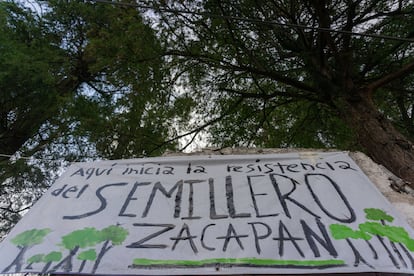 Aquí inicia la resistencia
del SEMILLERO
ZACAPAN